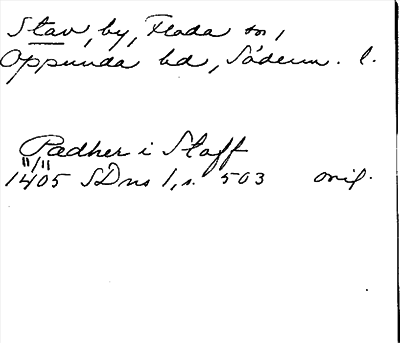 Stav, by, Floda sn,
Oppunda hd, Söderm. l.
Pædher i Staff
11/11
1405 SDns 1, s. 503 orig.